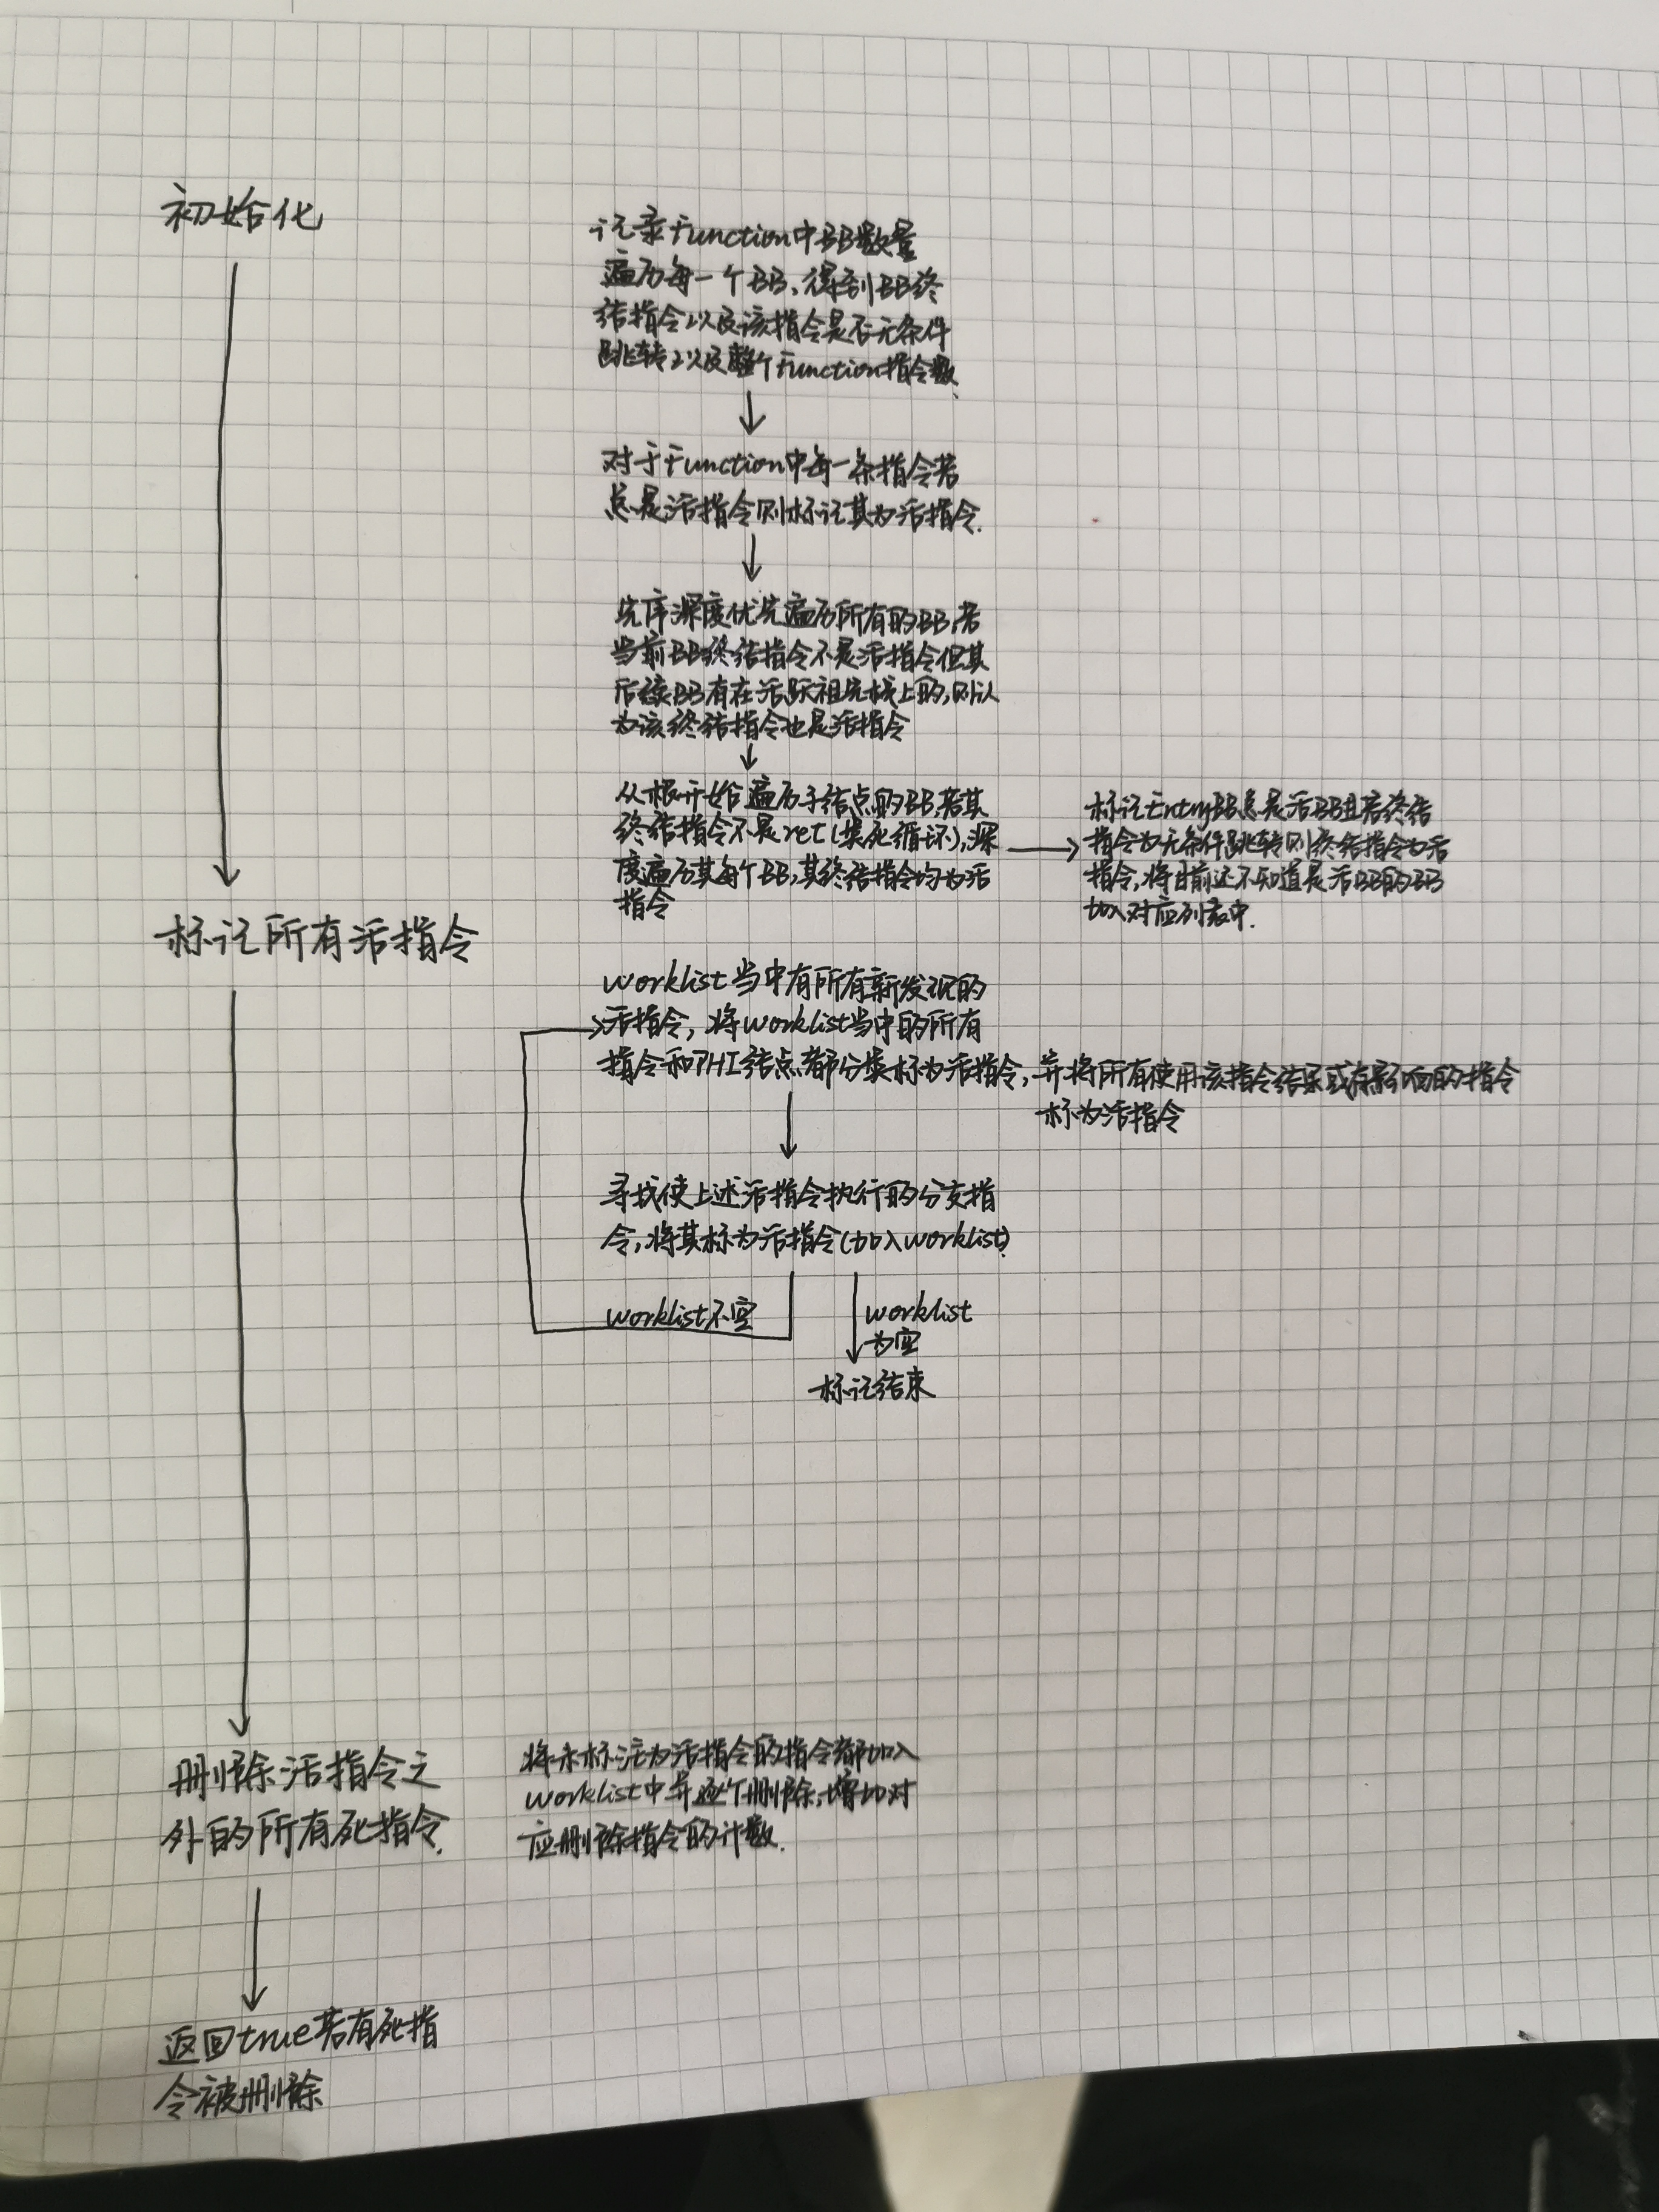 初始化
记录Function中BB数量
遍历每一个BB，得到BB终
结指令以及该指令是否无条件
跳转以及整个Function指令数.
对于Function中每一条指令若
总是活指令则标记其为活指令.
先序深度优先遍历所有的BB，若
当前BB终结指令不是活指令但其
后续BB有在活跃祖先栈上的，则认
为该终结指令也是活指令
从根开始遍历子结点的BB，若其
终结指令不是ret(类死循环)，深
度遍历其每个BB，其终结指令均为活
指令
标记EntryBB总是活BB且若终结
指令为无条件跳转则终结指令为活
指令，将目前还不知道是活BB的BB
加入对应列表中.
标记所有活指令
worklist当中有所有新发现的
活指令，将worklist当中的所有
指令和PHI结点都分类标为活指令，并将所有使用该指令结果或有影响的指令
标为活指令
寻找使上述活指令执行的分支指
令，将其标为活指令(加入worklist).
worklist不空
worklist
为空
标记结束
删除活指令之
外的所有死指令.
将未标注为活指令的指令都加入
worklist中并逐个删除，增加对
应删除指令的计数.
返回true若有死指
令被删除